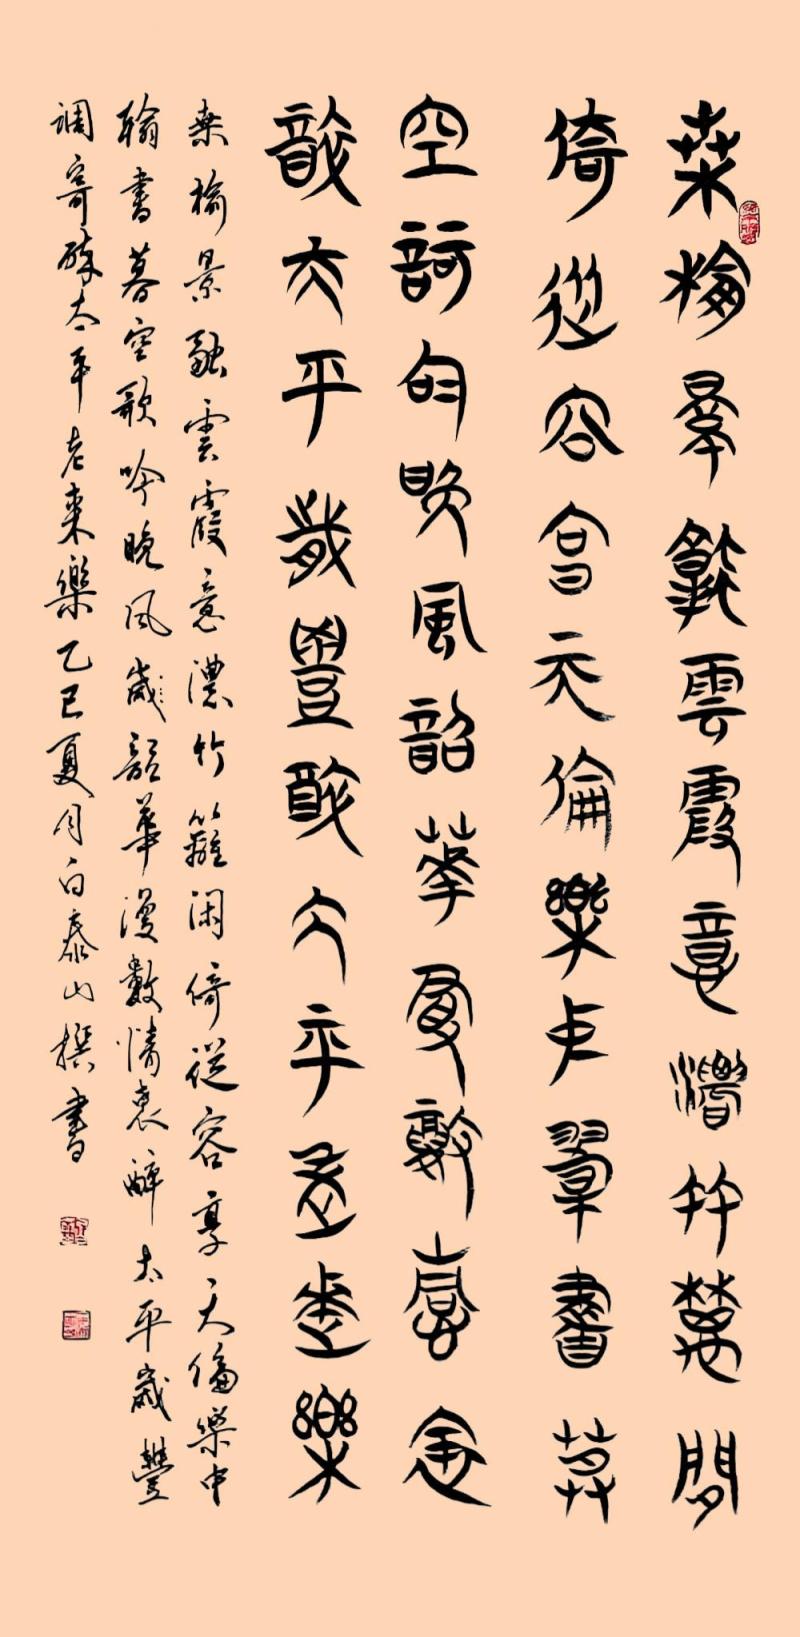 桑榆景融雲霞意濃竹籬閒
倚從容享天倫樂中翰書暮
空謌吟晚風韶華漫數
醉太平歲豐醉太平老来樂
桑榆景融雲霞意濃竹籬闲倚從容享天倫樂中
翰書暮空歌吟晚风歲韶華漫數情衷醉太平歲豐
调寄醉太平老来樂乙巳夏月白泰山撰書